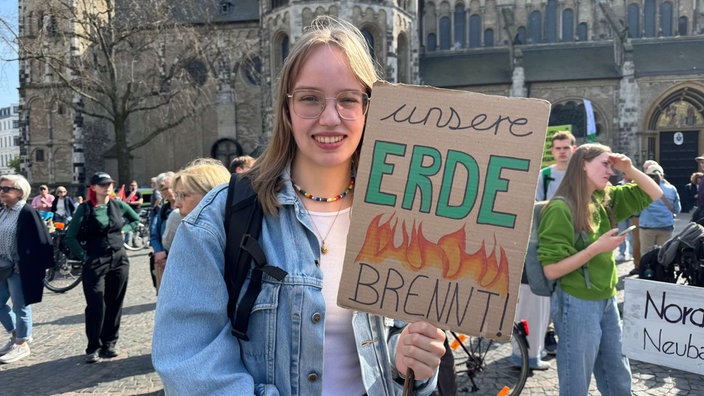 unsere
ERDE
BRENNT!
Nord
Neuba